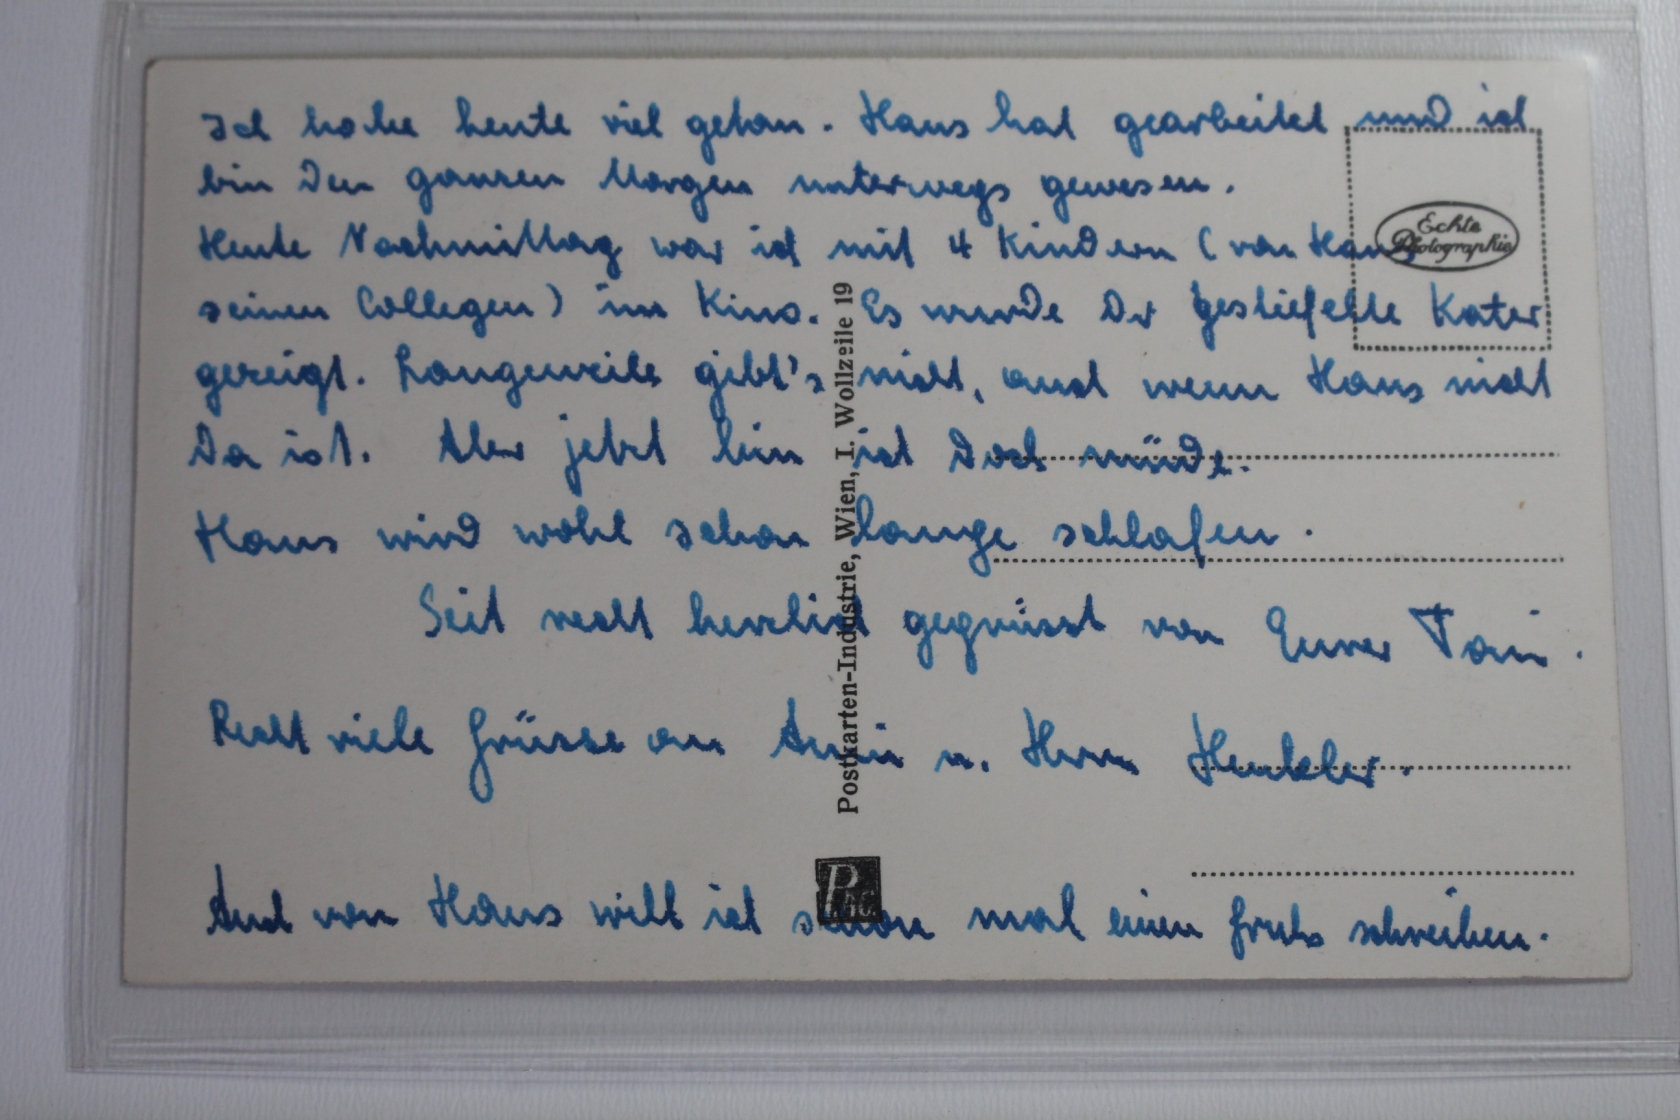 Ich habe heute viel getan. Hans hat gearbeitet und ich
bin den ganzen Morgen unterwegs gewesen.
Heute Nachmittag war ich mit 4 Kindern (von Hans
seinen Collegen) im Kino. Es wurde Der gestiefelte Kater
gezeigt. Langeweile gibt's nicht, auch wenn Hans nicht
da ist. Aber jetzt bin ich doch müde.
Hans wird wohl schon lange schlafen.
Seit recht herzlich gegrüsst von Eurer Toni.
Recht viele Grüsse an u. Herrn Henkler.
Auch von Hans will ich schon mal einen Gruß schreiben.
Echte
Photographie
Postkarten-Industrie, Wien, I. Wollzeile 19
PAG